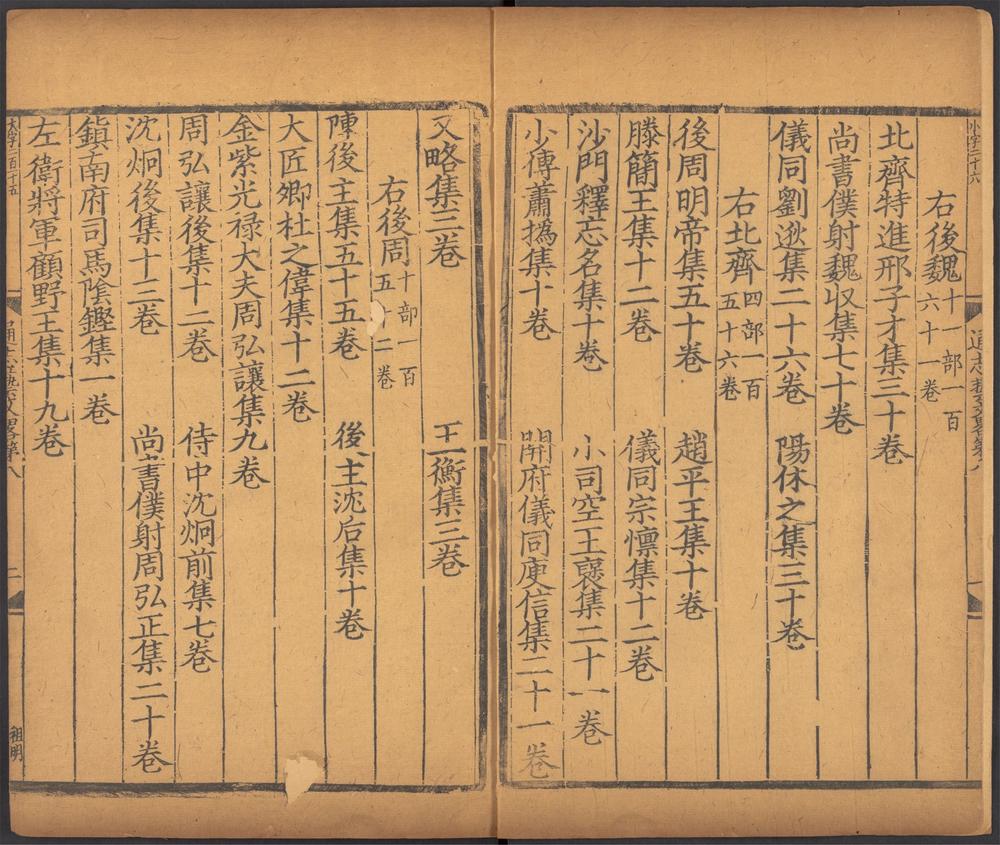 小字二十六
通志藝文略第八
右後魏十一部一百六十一卷
北齊特進邢子才集三十卷
尚書僕射魏收集七十卷
儀同劉逖集二十六卷 陽休之集三十卷
右北齊四部一百五十六卷
後周明帝集五十卷 趙平王集十卷
滕簡王集十二卷 儀同宗懍集十二卷
沙門釋忘名集十卷 小司空王襃集二十一卷
少傅蕭撝集十卷 開府儀同庾信集二十一卷
又略集三卷 王衡集三卷
右後周十部一百五十二卷
陳後主集五十五卷 後主沈后集十卷
大匠卿杜之偉集十二卷
金紫光禄大夫周弘讓集九卷
周弘讓後集十二卷 侍中沈炯前集七卷
沈炯後集十三卷 尚書僕射周弘正集二十卷
鎮南府司馬陰鏗集一卷
左衛將軍顧野王集十九卷
大字二百二十五
通志藝文略第八
二
祖明